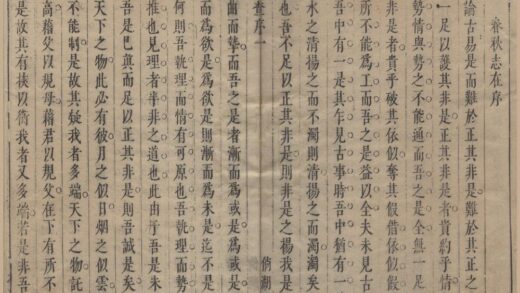 春秋志在序
論古易是而難於正其非是難於其正之
一足以護其非是正其非是者貴乎情
勢情與勢之不能通而吾之是全無一足
非是者貴乎破其依似奪其假借依似假
所不能為工而吾之是益以全夫未見古
吾中有一是其乍見古事時吾中猶有一
水之清揚之而不濁則清揚之而濁濁矣
也吾不足以正其非是則非是之揚我是
序一 倘湖
幽而摯而吾之是者漸而為或是為或是
而為欲是為欲是則漸而為未是迄不是
何則吾執理而情有可原也吾執理而勢
推也見理者半非之道也此由于吾是未
吾是已真而足以正其非是則吾誠是矣
天下之物此必有彼月之似日烟之似雲
不能制是故其疑我者多端天下之物託
高藉父以規母藉君以規父在下有所不
是故其有挾以我者又多端若是非吾